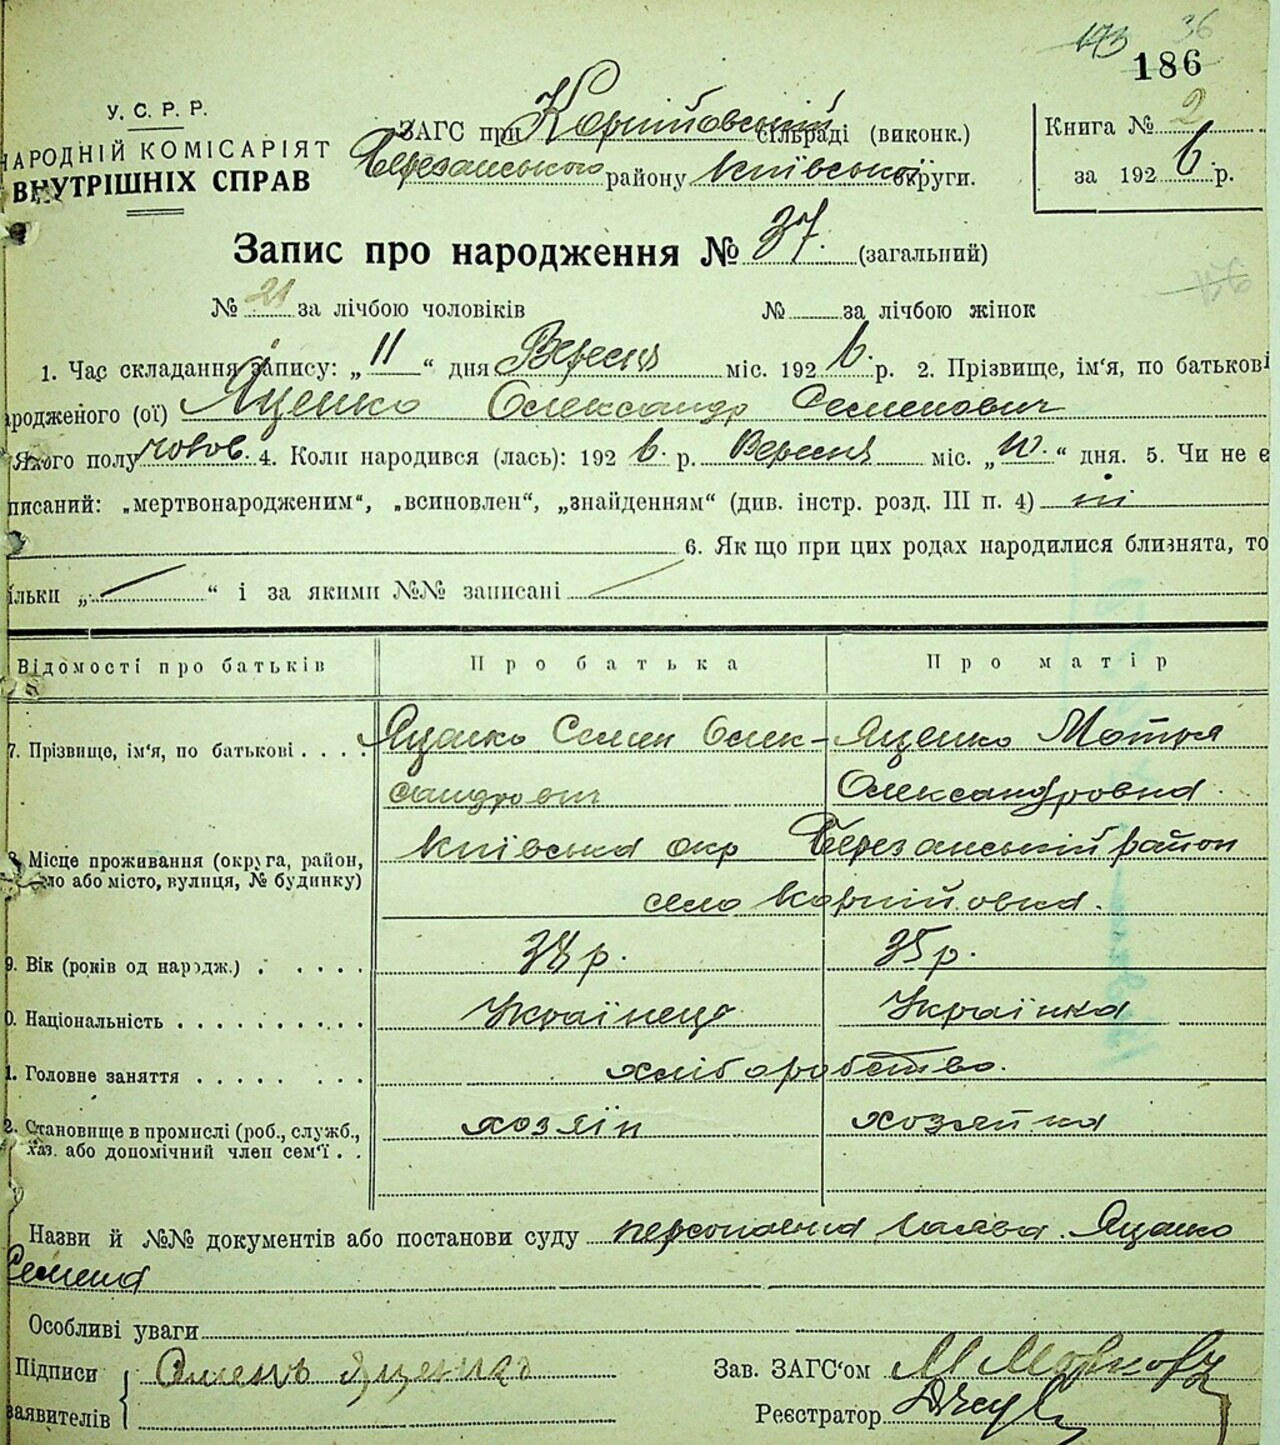 173 36
186
У. С. Р. Р.
НАРОДНІЙ КОМІСАРІЯТ
ВНУТРІШНІХ СПРАВ
ЗАГС при Корнійовській сільраді (виконк.)
Березанського району Київської округи.
Книга № 2
за 1926 р.
Запис про народження № 37. (загальний)
№ 21 за лічбою чоловіків № за лічбою жінок
1. Час складання запису: „11“ дня Вересня міс. 1926. р. 2. Прізвище, ім'я, по батькові
народженого (ої) Яценко Олександр Семенович
Якого полу чолов. 4. Коли народився (лась): 1926. р. Вересня міс. „10.“ дня. 5. Чи не є
писаний: „мертвонародженим“, „всиновлен“, „знайденням“ (див. інстр. розд. III п. 4) ні
6. Як що при цих родах народилися близнята, то
ільки „ “ і за якими №№ записані
Відомості про батьків Про батька Про матір
7. Прізвище, ім'я, по батькові . . . . Яценко Семен Олек- Яценко Мотря
сандрович Олександровна.
8. Місце проживання (округа, район, Київська окр Березанський район
село або місто, вулиця, № будинку) село Корнійовка.
9. Вік (років од народж.) . . . . . 38 р. 35 р.
0. Національність . . . . . . . . . . Українець Українка
1. Головне заняття . . . . . . . . хліборобство.
2. Становище в промислі (роб., служб., хозяїн хозяйка
хаз. або допомічний член сем'ї . .
Назви й №№ документів або постанови суду персональна заява. Яценко
Семена
Особливі уваги
Підписи Яценко Зав. ЗАГС'ом
заявителів Реєстратор